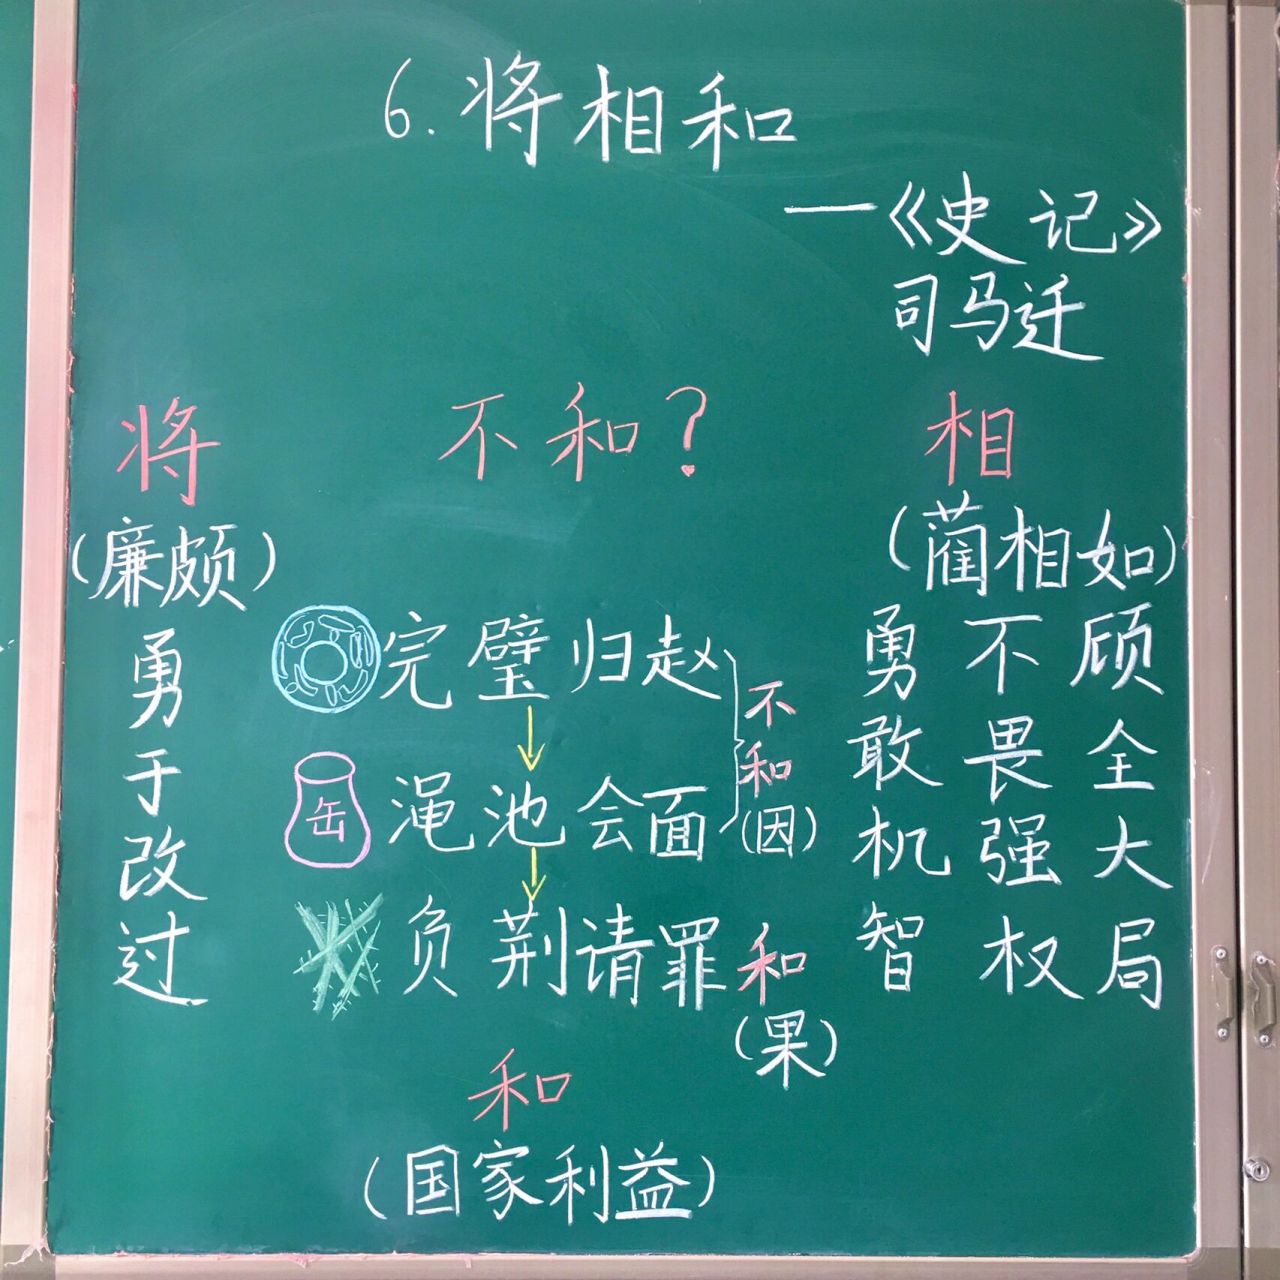 6.将相和
—《史记》
司马迁
将 不和? 相
(廉颇)
(蔺相如)
勇于改过
完璧归赵
缶
渑池会面
不和(因)
负荆请罪
和(果)
勇敢机智
不畏强权
顾全大局
和
(国家利益)